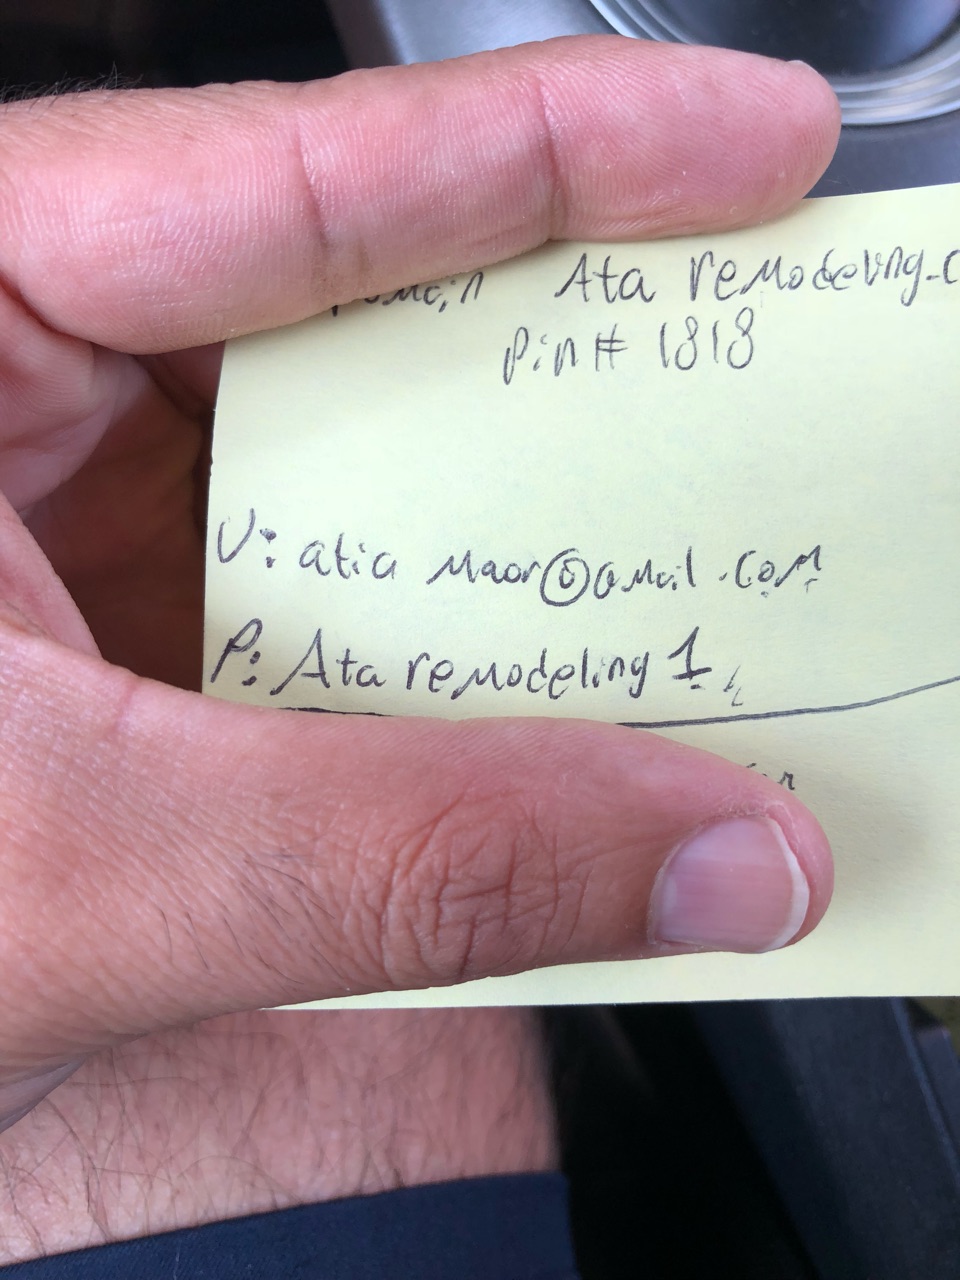 Domain Ata remodeling.c
Pin# 1818
U: atia maor@gmail.com
P: Ata remodeling 1